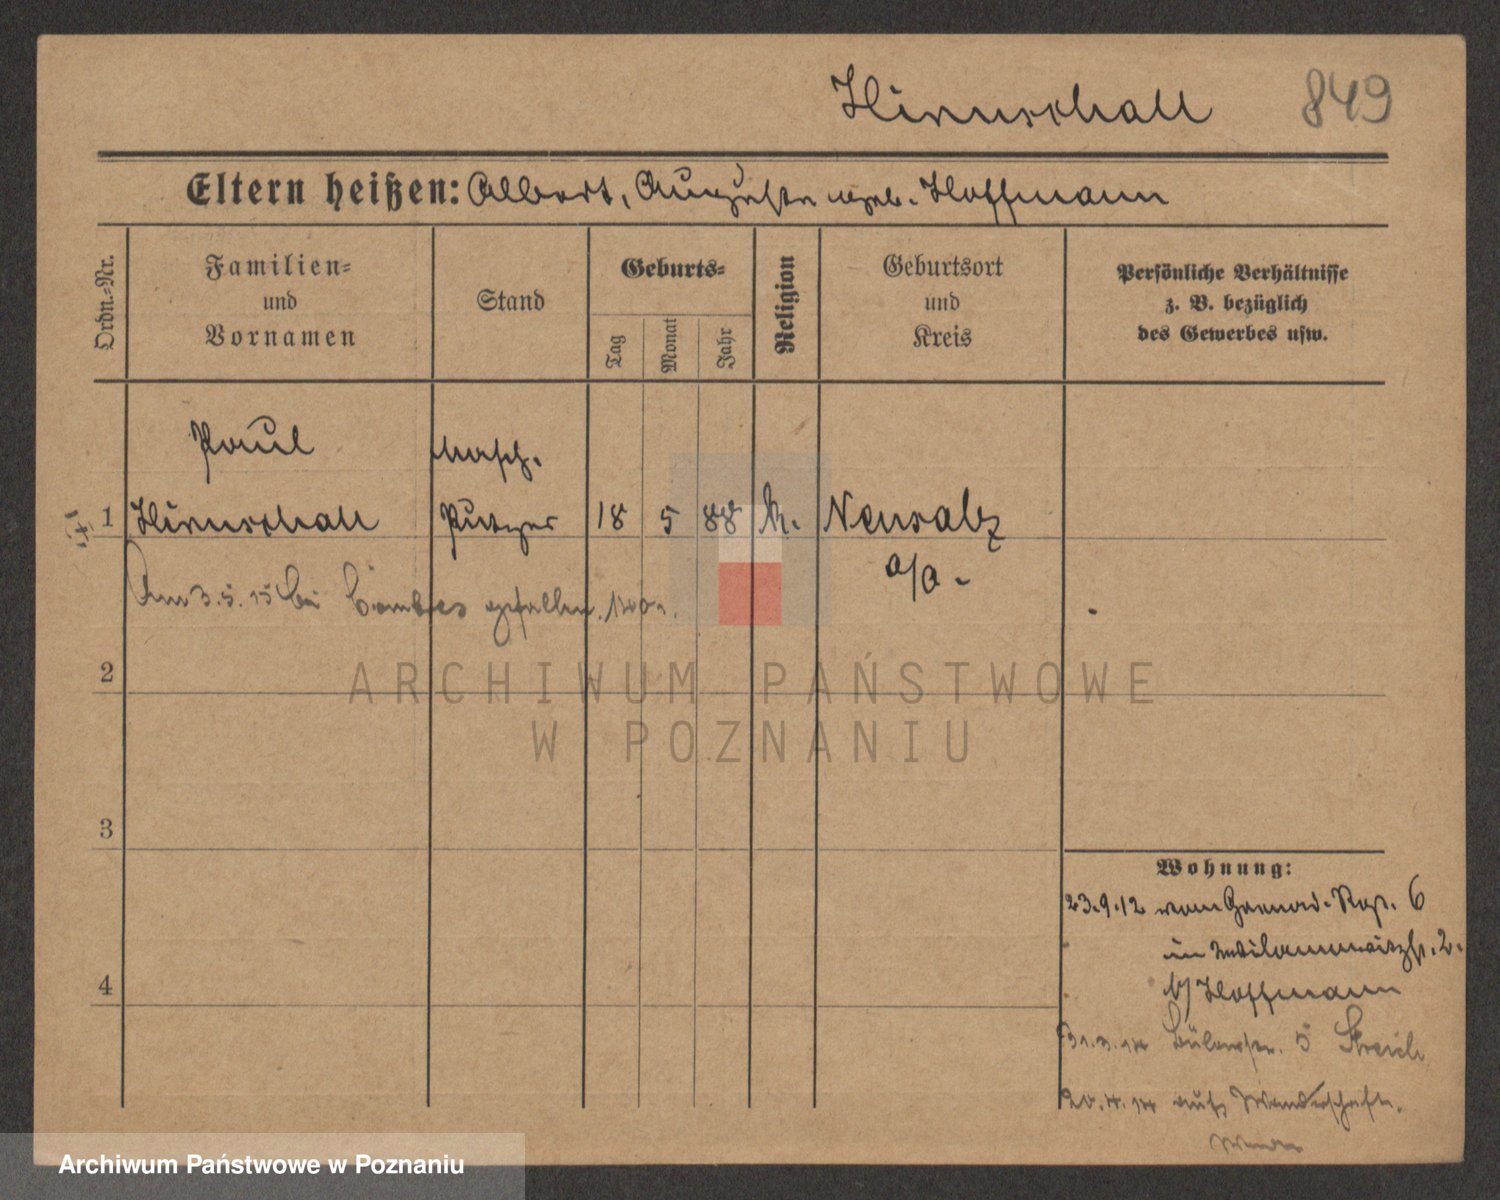 Hirnschall 849
Eltern heißen: Albert, Auguste geb. Hoffmann
Ordn.-Nr.
Familien-
und
Vornamen
Stand
Geburts-
Tag
Monat
Jahr
Religion
Geburtsort
und
Kreis
Persönliche Verhältnisse
z. B. bezüglich
des Gewerbes usw.
Paul Masch.
1 Hirnschall Putzer 18 5 88 k. Neusalz
a/O.
Am 3.5.15 bei Combres gefallen.
2
3
4
Wohnung:
23.9.12 vom Grenad. Reg. 6
in Wilamowitzstr. 2.
b/ Hoffmann
31.3.14 Bülowstr. 5
20.4.14 auf Wanderschaft.
ARCHIWUM PAŃSTWOWE
W POZNANIU
Archiwum Państwowe w Poznaniu